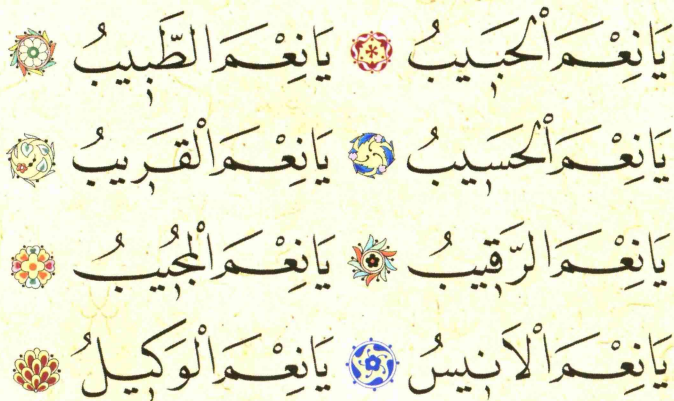 يَا نِعْمَ الْحَبِيبُ يَا نِعْمَ الطَّبِيبُ
يَا نِعْمَ الْحَسِيبُ يَا نِعْمَ الْقَرِيبُ
يَا نِعْمَ الرَّقِيبُ يَا نِعْمَ الْمُجِيبُ
يَا نِعْمَ الْاَنِيسُ يَا نِعْمَ الْوَكِيلُ